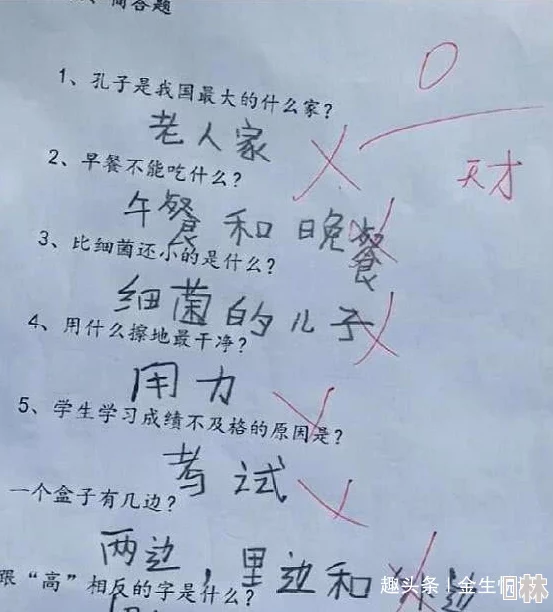 简答题
1、孔子是我国最大的什么家？
老人家
0
天才
2、早餐不能吃什么？
午餐和晚餐
3、比细菌还小的是什么？
细菌的儿子
4、用什么擦地最干净？
用力
5、学生学习成绩不及格的原因是？
考试
一个盒子有几边？
两边，里边和外边
跟“高”相反的字是什么？
趣头条